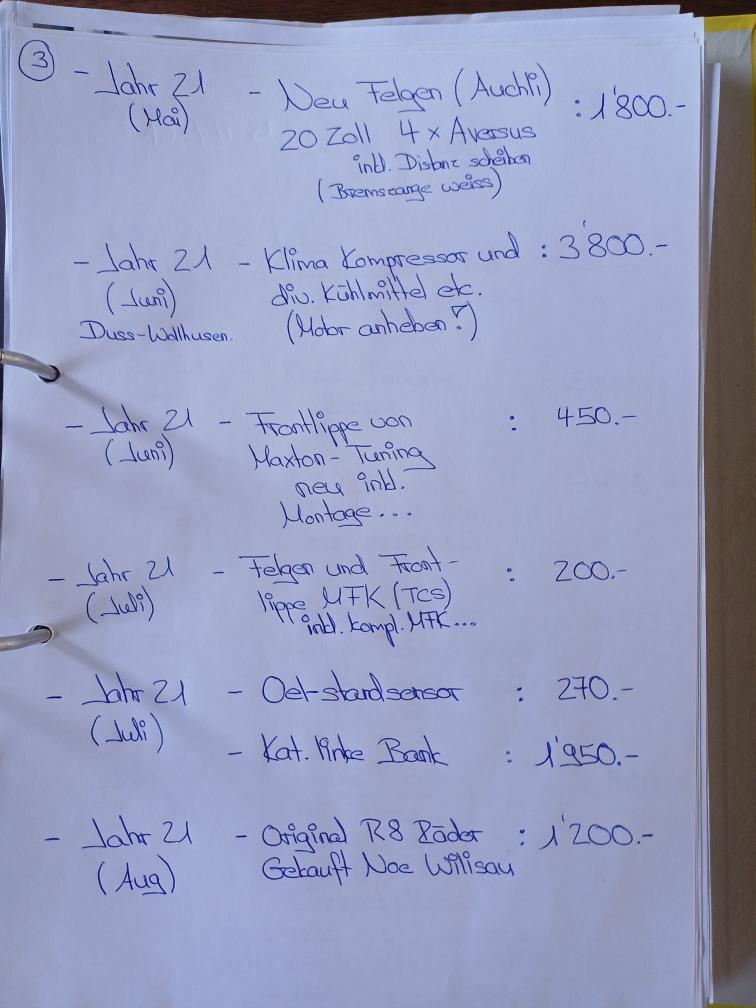 ③ - Jahr 21 - Neu Felgen (Auchli) : 1'800.-
(Mai) 20 Zoll 4 x Aversus
inkl. Distanz scheiben
(Bremszange weiss)
- Jahr 21 - Klima Kompressor und : 3'800.-
(Juni) div. Kühlmittel etc.
Duss-Wolhusen. (Motor anheben!)
- Jahr 21 - Frontlippe von : 450.-
(Juni) Maxton-Tuning
neu inkl.
Montage...
- Jahr 21 - Felgen und Front- : 200.-
(Juli) lippe MFK (TCS)
inkl. kompl. MFK...
- Jahr 21 - Oel-standsensor : 270.-
(Juli)
- Kat. linke Bank : 1'950.-
- Jahr 21 - Original R8 Räder : 1'200.-
(Aug) Gekauft Noe Wilisau